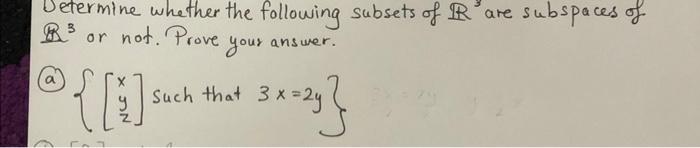 Determine whether the following subsets of ℝ³ are subspaces of
ℝ³ or not. Prove your answer.
ⓐ { [x y z] such that 3x=2y }